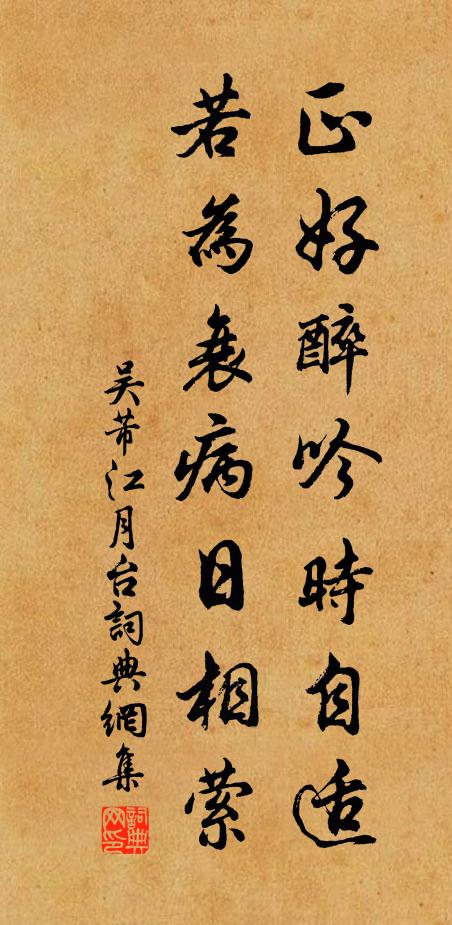 正好醉吟時自适
若為衰病日相萦
吴芾江月台詞典網集
詞典网印